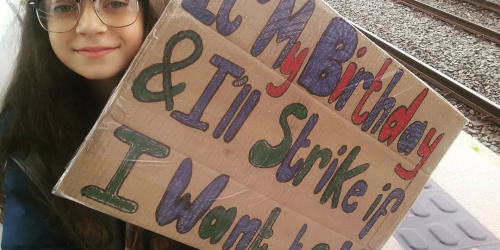 It's My Birthday
& I'll Strike if
I Want